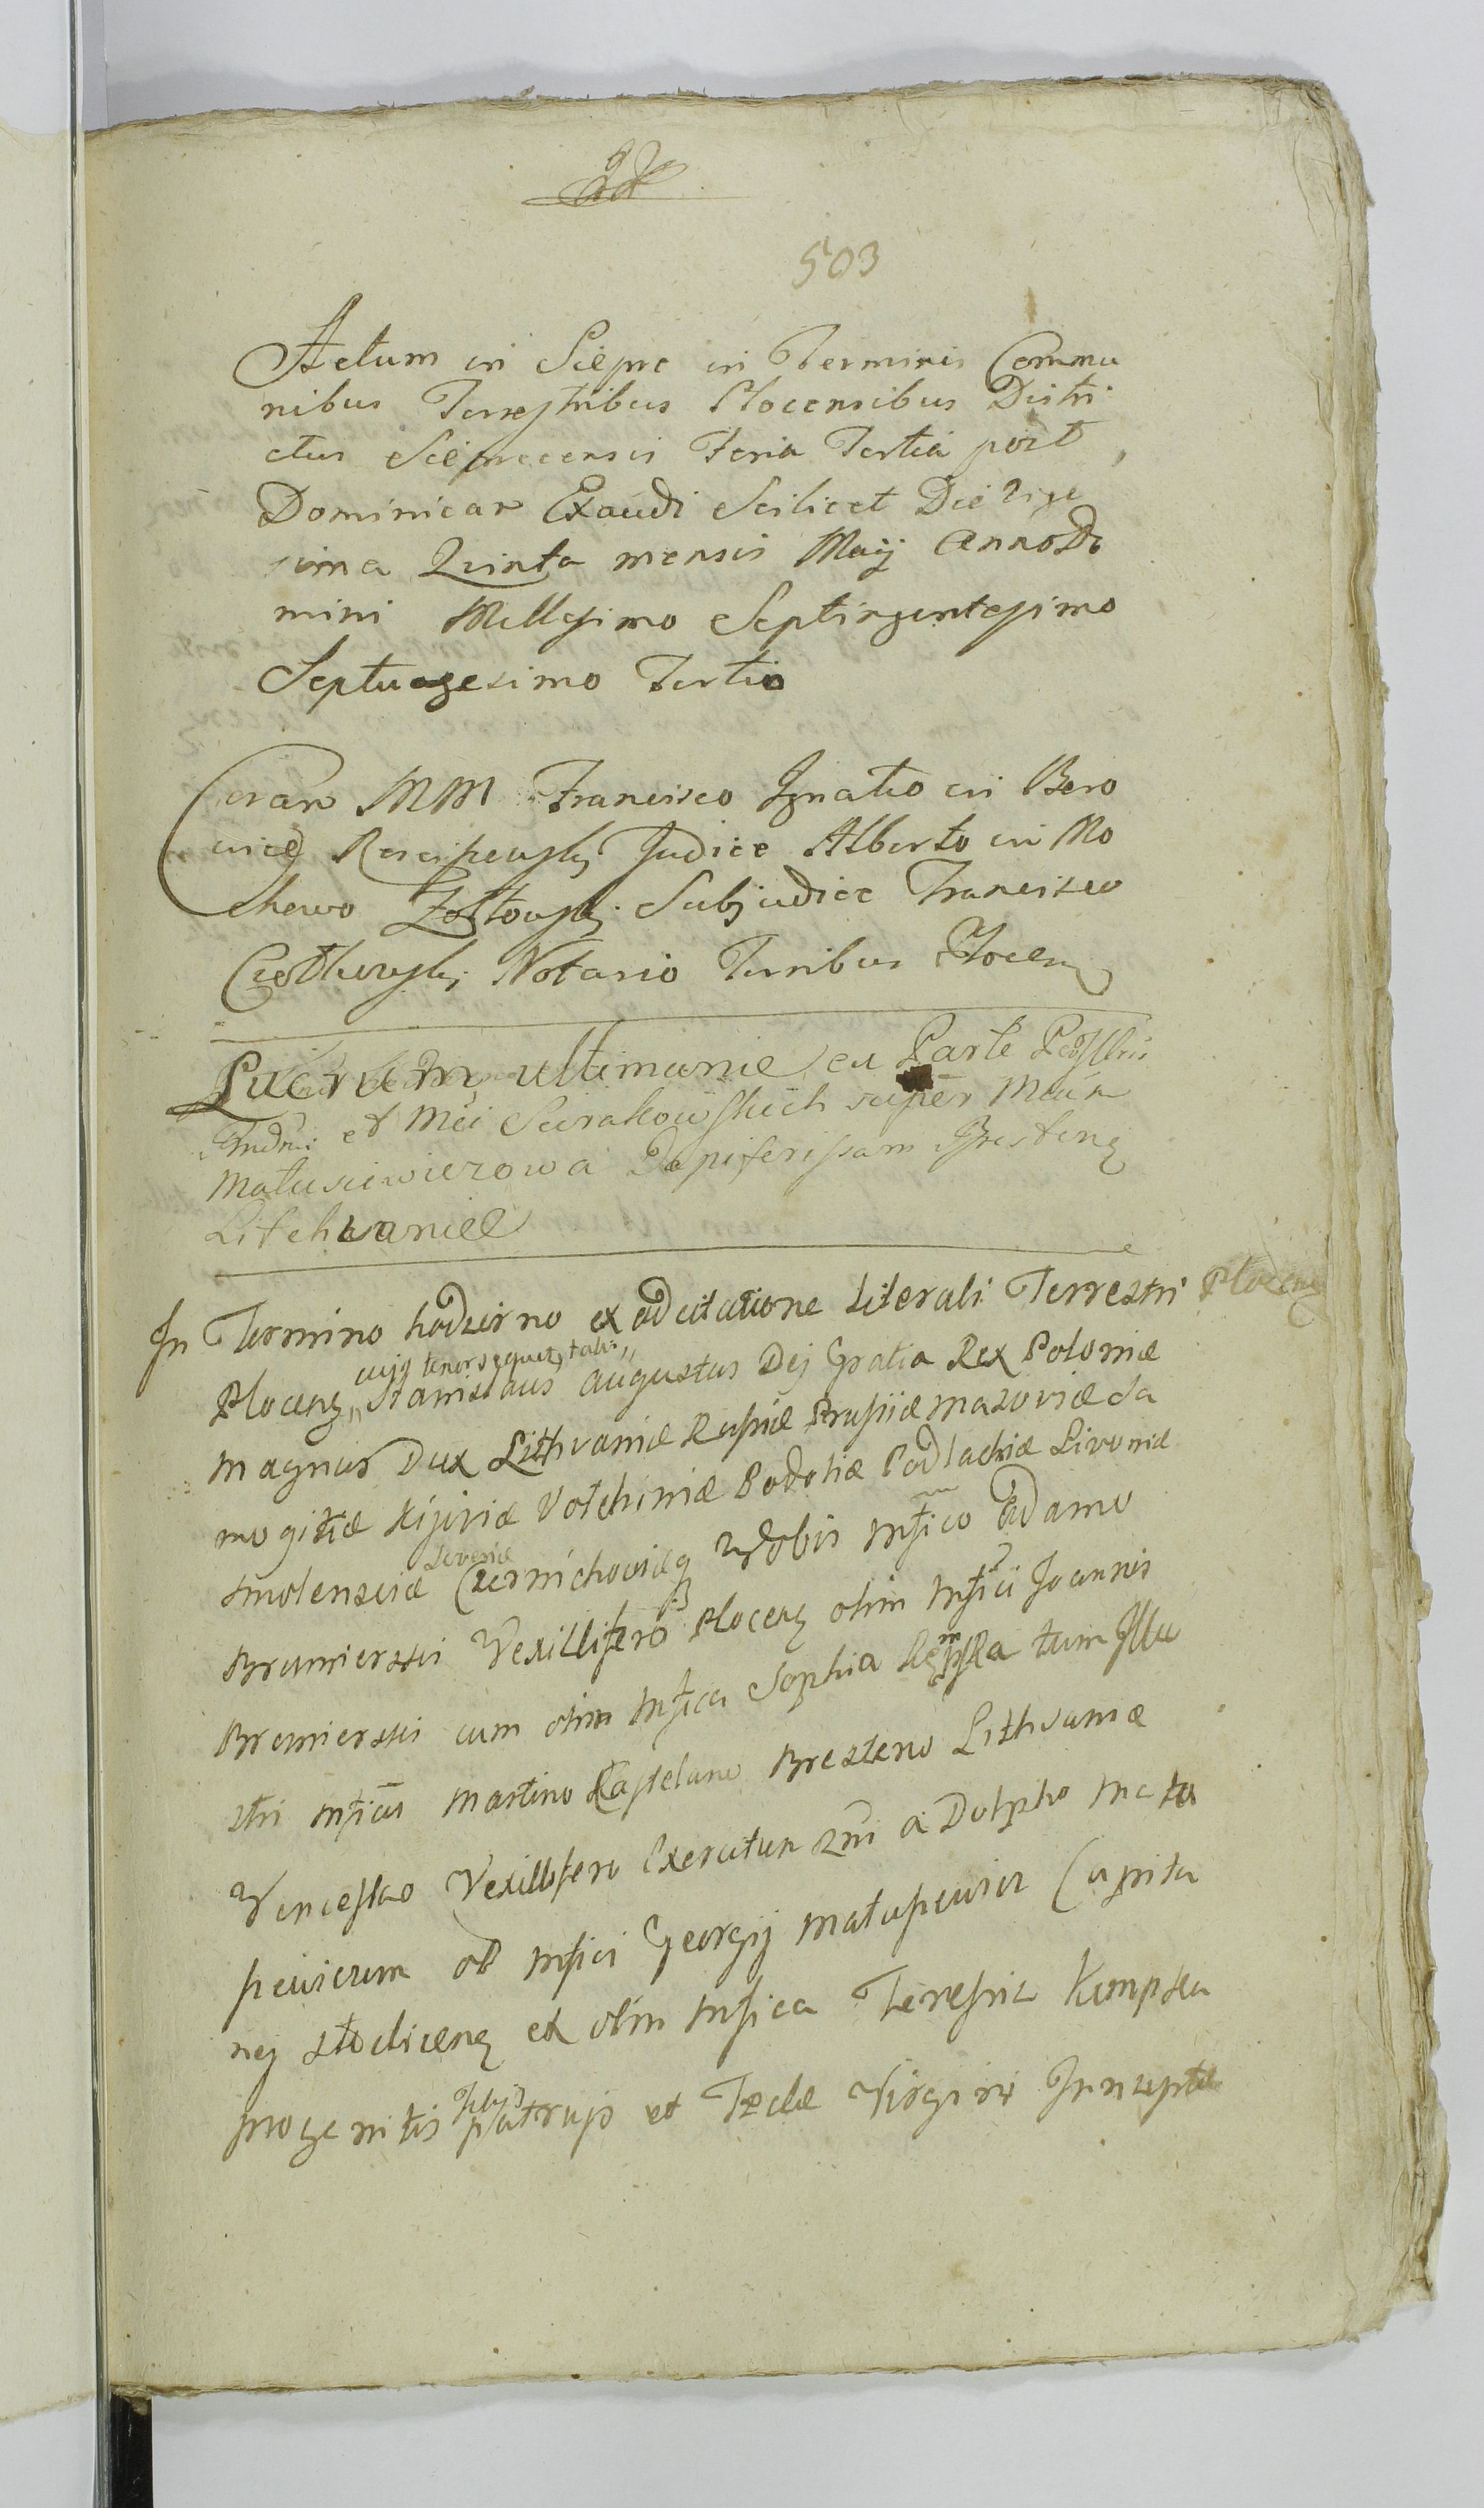 503
Actum in Sieprc in Terminis Commu
nibus Terrestribus Plocensibus Distri
ctus Sieprecensis Feria Tertia post
Dominicam Exaudi Scilicet Die Vige
sima Quinta mensis Maij Anno Do
mini Millesimo Septingentesimo
Septuagesimo Tertio
Coram MM Francisco Ignatio in Bero
Judice Alberto in Mo
chowo Zołtowski Subjudice Francisco
Notario Terribus Plocens
Lucrum ultimarie ex Parte
et Mci Sierakowskich super Mcam
Matusiewiczowa Dapiferissam Brestens
Litehvaniae
In Termino hodierno ex adcitatione Literali Terrestri Plocens
cujq tenor sequitr talis
Plocens Stanislaus Augustus Dej Gratia Rex Poloniae
Magnus Dux Lithvaniae Russiae Prussiae Mazoviae Sa
mogitiae Kijoviae Volchiniae Podoliae Podlachiae Livoniae
Smolensciae Severiae Czernichoviaeq Vobis Mfico Adamo
Bromierski Vexillifero Plocens olim Mfici Joannis
Bromierski cum olim Mfica Sophia Kempska tum Illu
stri Mficis Martino Kastelano Bresteno Lithvaniae
Venceslao Vexillifero Exercitum a Dolpho Matu
siewiczom olim Mfici Georgij Matusiewicz Capita
nej Stocliscens ex olim Mfica Teressia Kempska
progenitis filijs patrujs et Teclae Virgini Innuptae